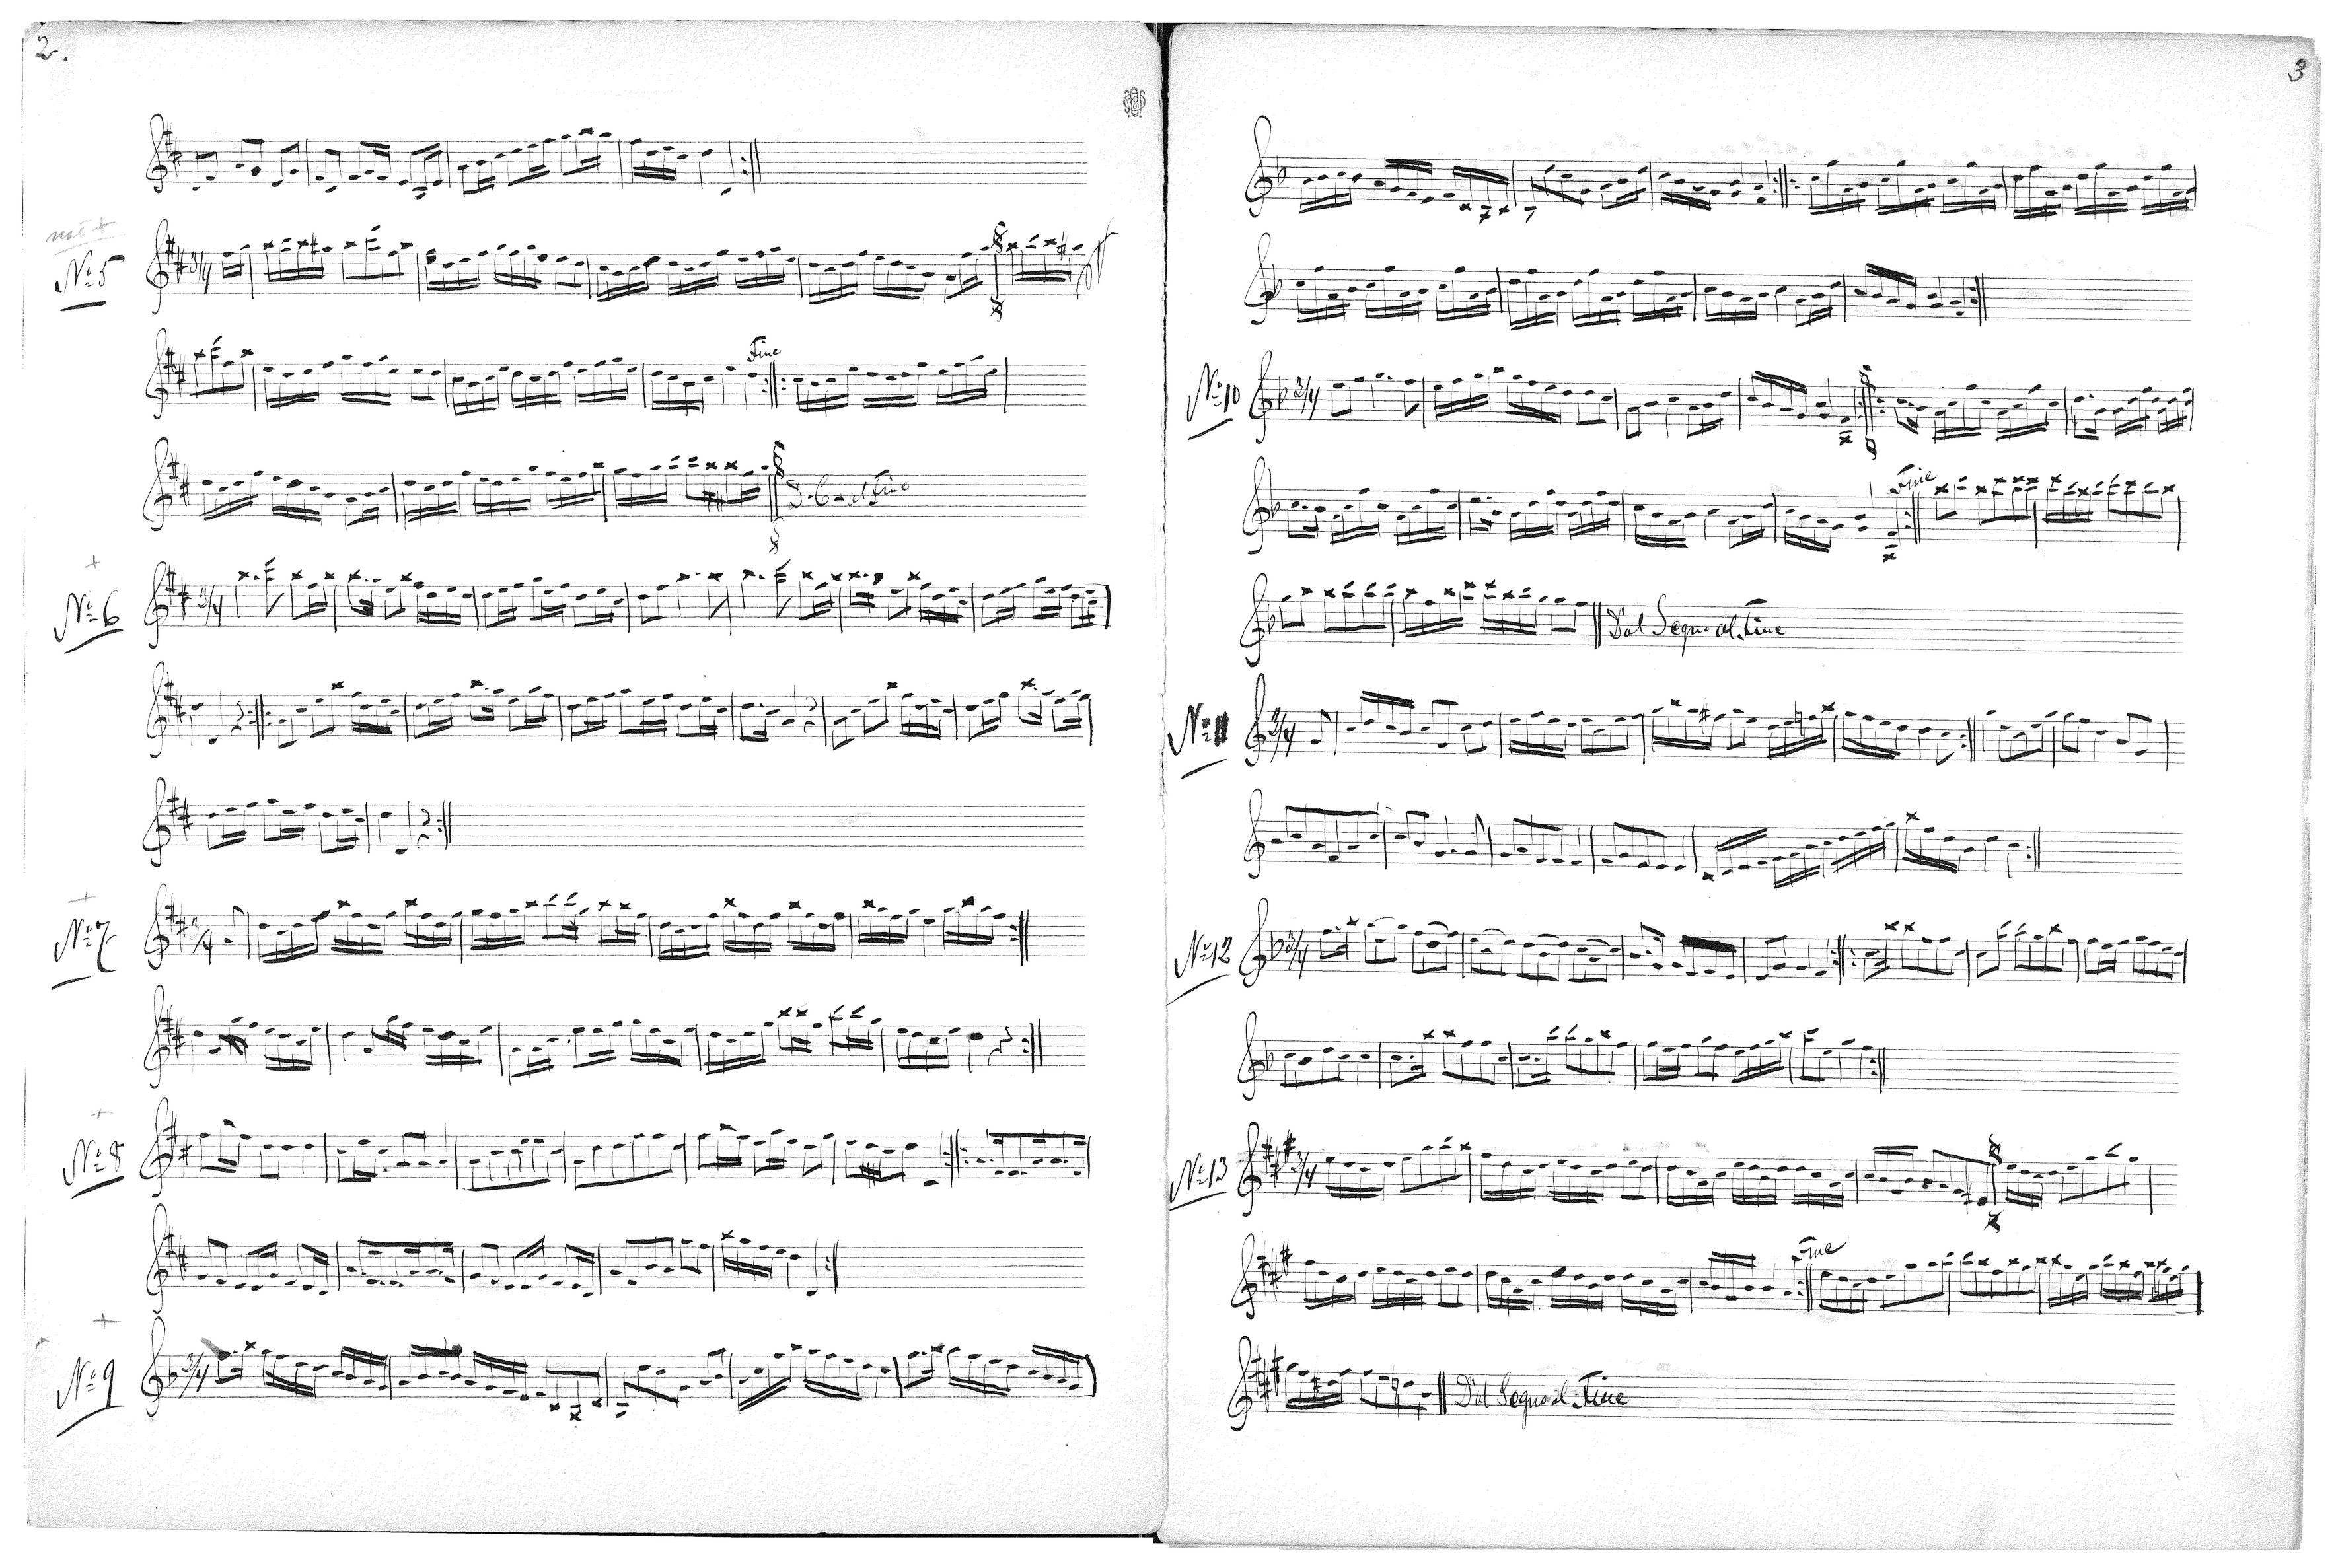 2.
№ 5
3/4
Fine
D. C. al Fine
№ 6
3/4
№ 7
3/4
№ 8
№ 9
3/4
3
№ 10
3/4
Fine
Dal Segno al Fine
№ 11
3/4
№ 12
3/4
№ 13
3/4
Fine
Dal Segno al Fine